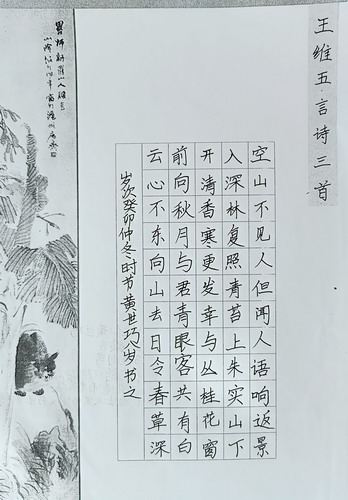 王维五言诗三首
空山不见人但闻人语响返景
入深林复照青苔上朱实山下
开清香寒更发幸与丛桂花窗
前向秋月与君青眼客共有白
云心不东向山去日令春草深
岁次癸卯仲冬时节黄世巧八岁书之